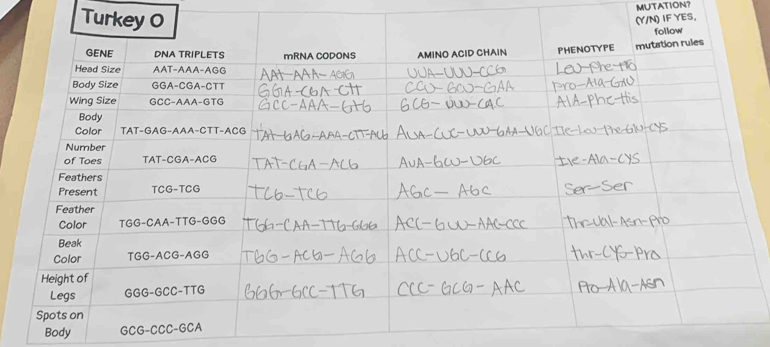 Turkey O
MUTATION?
(Y/N) IF YES,
follow
mutation rules
GENE DNA TRIPLETS mRNA CODONS AMINO ACID CHAIN PHENOTYPE
Head Size AAT-AAA-AGG AAT-AAA-AGG UUA-UUU-CCG Leu-Phe-
Body Size GGA-CGA-CTT GGA-CGA-CTT CCU-GCU-GAA Pro-Ala-GAU
Wing Size GCC-AAA-GTG GCC-AAA-GTG GCG-UU-CAC Ala-Phe-His
Body
Color TAT-GAG-AAA-CTT-ACG TAT-GAG-AAA-CTT-ACG AUA-CUC-UU-GAA-UGC Ile-Leu-Phe-Glu-Cys
Number
of Toes TAT-CGA-ACG TAT-CGA-ACG AUA-GCU-UGC Ile-Ala-Cys
Feathers
Present TCG-TCG TCG-TCG AGC-AGC Ser-Ser
Feather
Color TGG-CAA-TTG-GGG TGG-CAA-TTG-GGG ACC-GUU-AAC-CCC Thr-Val-Asn-Pro
Beak
Color TGG-ACG-AGG TGG-ACG-AGG ACC-UGC-CCG thr-Cys-Pro
Height of
Legs GGG-GCC-TTG GGG-GCC-TTG CCC-GCG-AAC Pro-Ala-Asn
Spots on
Body GCG-CCC-GCA